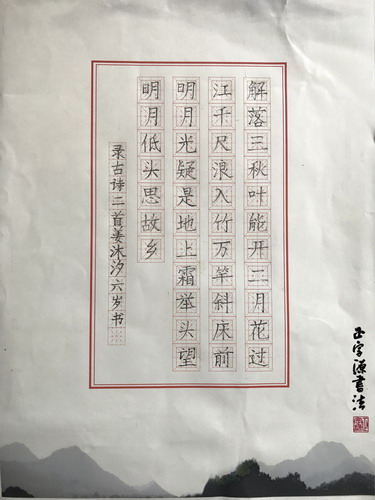 解落三秋叶能开二月花过
江千尺浪入竹万竿斜床前
明月光疑是地上霜举头望
明月低头思故乡
录古诗二首姜沐汐六岁书
正字源书法